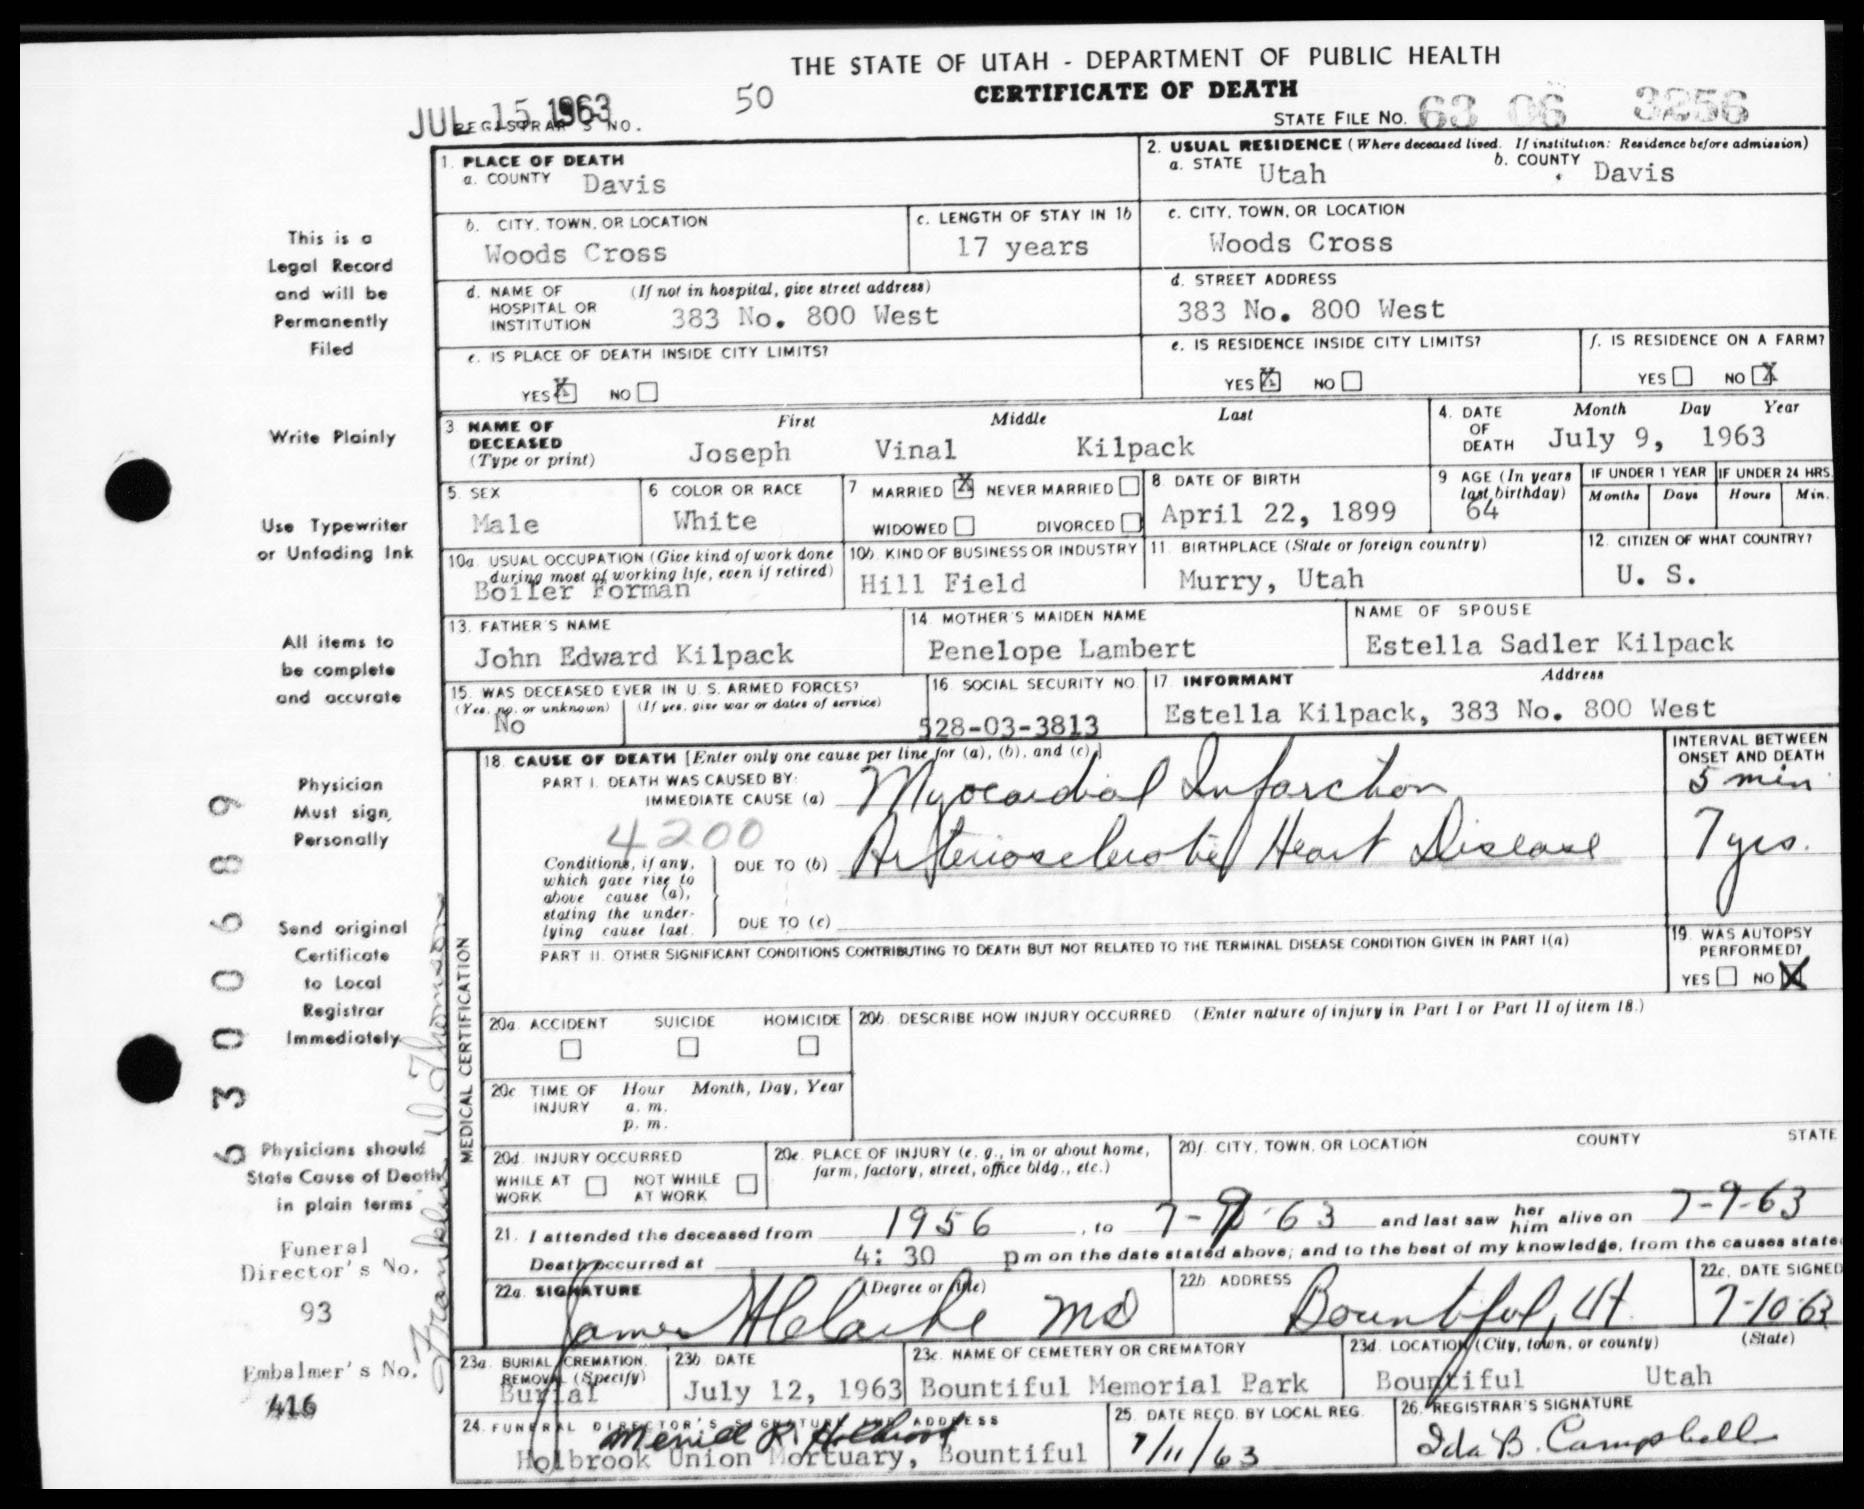 THE STATE OF UTAH - DEPARTMENT OF PUBLIC HEALTH
CERTIFICATE OF DEATH
JUL 15 1963
REGISTRAR'S NO.
50
STATE FILE NO. 63 06 3256
This is a
Legal Record
and will be
Permanently
Filed
Write Plainly
Use Typewriter
or Unfading Ink
All items to
be complete
and accurate
Physician
Must sign
Personally
Send original
Certificate
to Local
Registrar
Immediately
Physicians should
State Cause of Death
in plain terms
Funeral
Director's No.
93
Embalmer's No.
416
6300689
Franklin D. Thomson
1. PLACE OF DEATH
a. COUNTY Davis
2. USUAL RESIDENCE (Where deceased lived. If institution: Residence before admission)
a. STATE Utah b. COUNTY Davis
b. CITY, TOWN, OR LOCATION
Woods Cross
c. LENGTH OF STAY IN 1b
17 years
c. CITY, TOWN, OR LOCATION
Woods Cross
d. NAME OF HOSPITAL OR INSTITUTION (If not in hospital, give street address)
383 No. 800 West
d. STREET ADDRESS
383 No. 800 West
e. IS PLACE OF DEATH INSIDE CITY LIMITS?
YES X NO
e. IS RESIDENCE INSIDE CITY LIMITS?
YES X NO
f. IS RESIDENCE ON A FARM?
YES NO X
3 NAME OF DECEASED (Type or print)
First Middle Last
Joseph Vinal Kilpack
4. DATE OF DEATH Month Day Year
July 9, 1963
5. SEX
Male
6 COLOR OR RACE
White
7 MARRIED X NEVER MARRIED
WIDOWED DIVORCED
8. DATE OF BIRTH
April 22, 1899
9 AGE (In years last birthday)
64
IF UNDER 1 YEAR
Months Days
IF UNDER 24 HRS.
Hours Min.
10a. USUAL OCCUPATION (Give kind of work done during most of working life, even if retired)
Boiler Forman
10b. KIND OF BUSINESS OR INDUSTRY
Hill Field
11. BIRTHPLACE (State or foreign country)
Murry, Utah
12. CITIZEN OF WHAT COUNTRY?
U. S.
13. FATHER'S NAME
John Edward Kilpack
14. MOTHER'S MAIDEN NAME
Penelope Lambert
NAME OF SPOUSE
Estella Sadler Kilpack
15. WAS DECEASED EVER IN U. S. ARMED FORCES?
(Yes, no, or unknown) (If yes, give war or dates of service)
No
16. SOCIAL SECURITY NO.
528-03-3813
17. INFORMANT Address
Estella Kilpack, 383 No. 800 West
MEDICAL CERTIFICATION
18. CAUSE OF DEATH [Enter only one cause per line for (a), (b), and (c).]
INTERVAL BETWEEN ONSET AND DEATH
PART I. DEATH WAS CAUSED BY:
IMMEDIATE CAUSE (a) Myocardial Infarction 5 min
4200
Conditions, if any, which gave rise to above cause (a), stating the underlying cause last.
DUE TO (b) Arteriosclerotic Heart Disease 7 yrs.
DUE TO (c)
PART II. OTHER SIGNIFICANT CONDITIONS CONTRIBUTING TO DEATH BUT NOT RELATED TO THE TERMINAL DISEASE CONDITION GIVEN IN PART I(a)
19. WAS AUTOPSY PERFORMED?
YES NO X
20a. ACCIDENT SUICIDE HOMICIDE
20b. DESCRIBE HOW INJURY OCCURRED (Enter nature of injury in Part I or Part II of item 18.)
20c. TIME OF INJURY Hour Month, Day, Year
a. m.
p. m.
20d. INJURY OCCURRED
WHILE AT WORK NOT WHILE AT WORK
20e. PLACE OF INJURY (e. g., in or about home, farm, factory, street, office bldg., etc.)
20f. CITY, TOWN, OR LOCATION COUNTY STATE
21. I attended the deceased from 1956, to 7-9-63 and last saw her him alive on 7-9-63
Death occurred at 4:30 pm on the date stated above; and to the best of my knowledge, from the causes state
22a. SIGNATURE (Degree or title)
James H Clarke MD
22b. ADDRESS
Bountiful, Ut.
22c. DATE SIGNED
7-10-63
23a. BURIAL, CREMATION, REMOVAL (Specify)
Burial
23b. DATE
July 12, 1963
23c. NAME OF CEMETERY OR CREMATORY
Bountiful Memorial Park
23d. LOCATION (City, town, or county) (State)
Bountiful Utah
24. FUNERAL DIRECTOR'S SIGNATURE AND ADDRESS
Merrill R. Holbrook
Holbrook Union Mortuary, Bountiful
25. DATE RECD. BY LOCAL REG.
7/11/63
26. REGISTRAR'S SIGNATURE
Ida B. Campbell